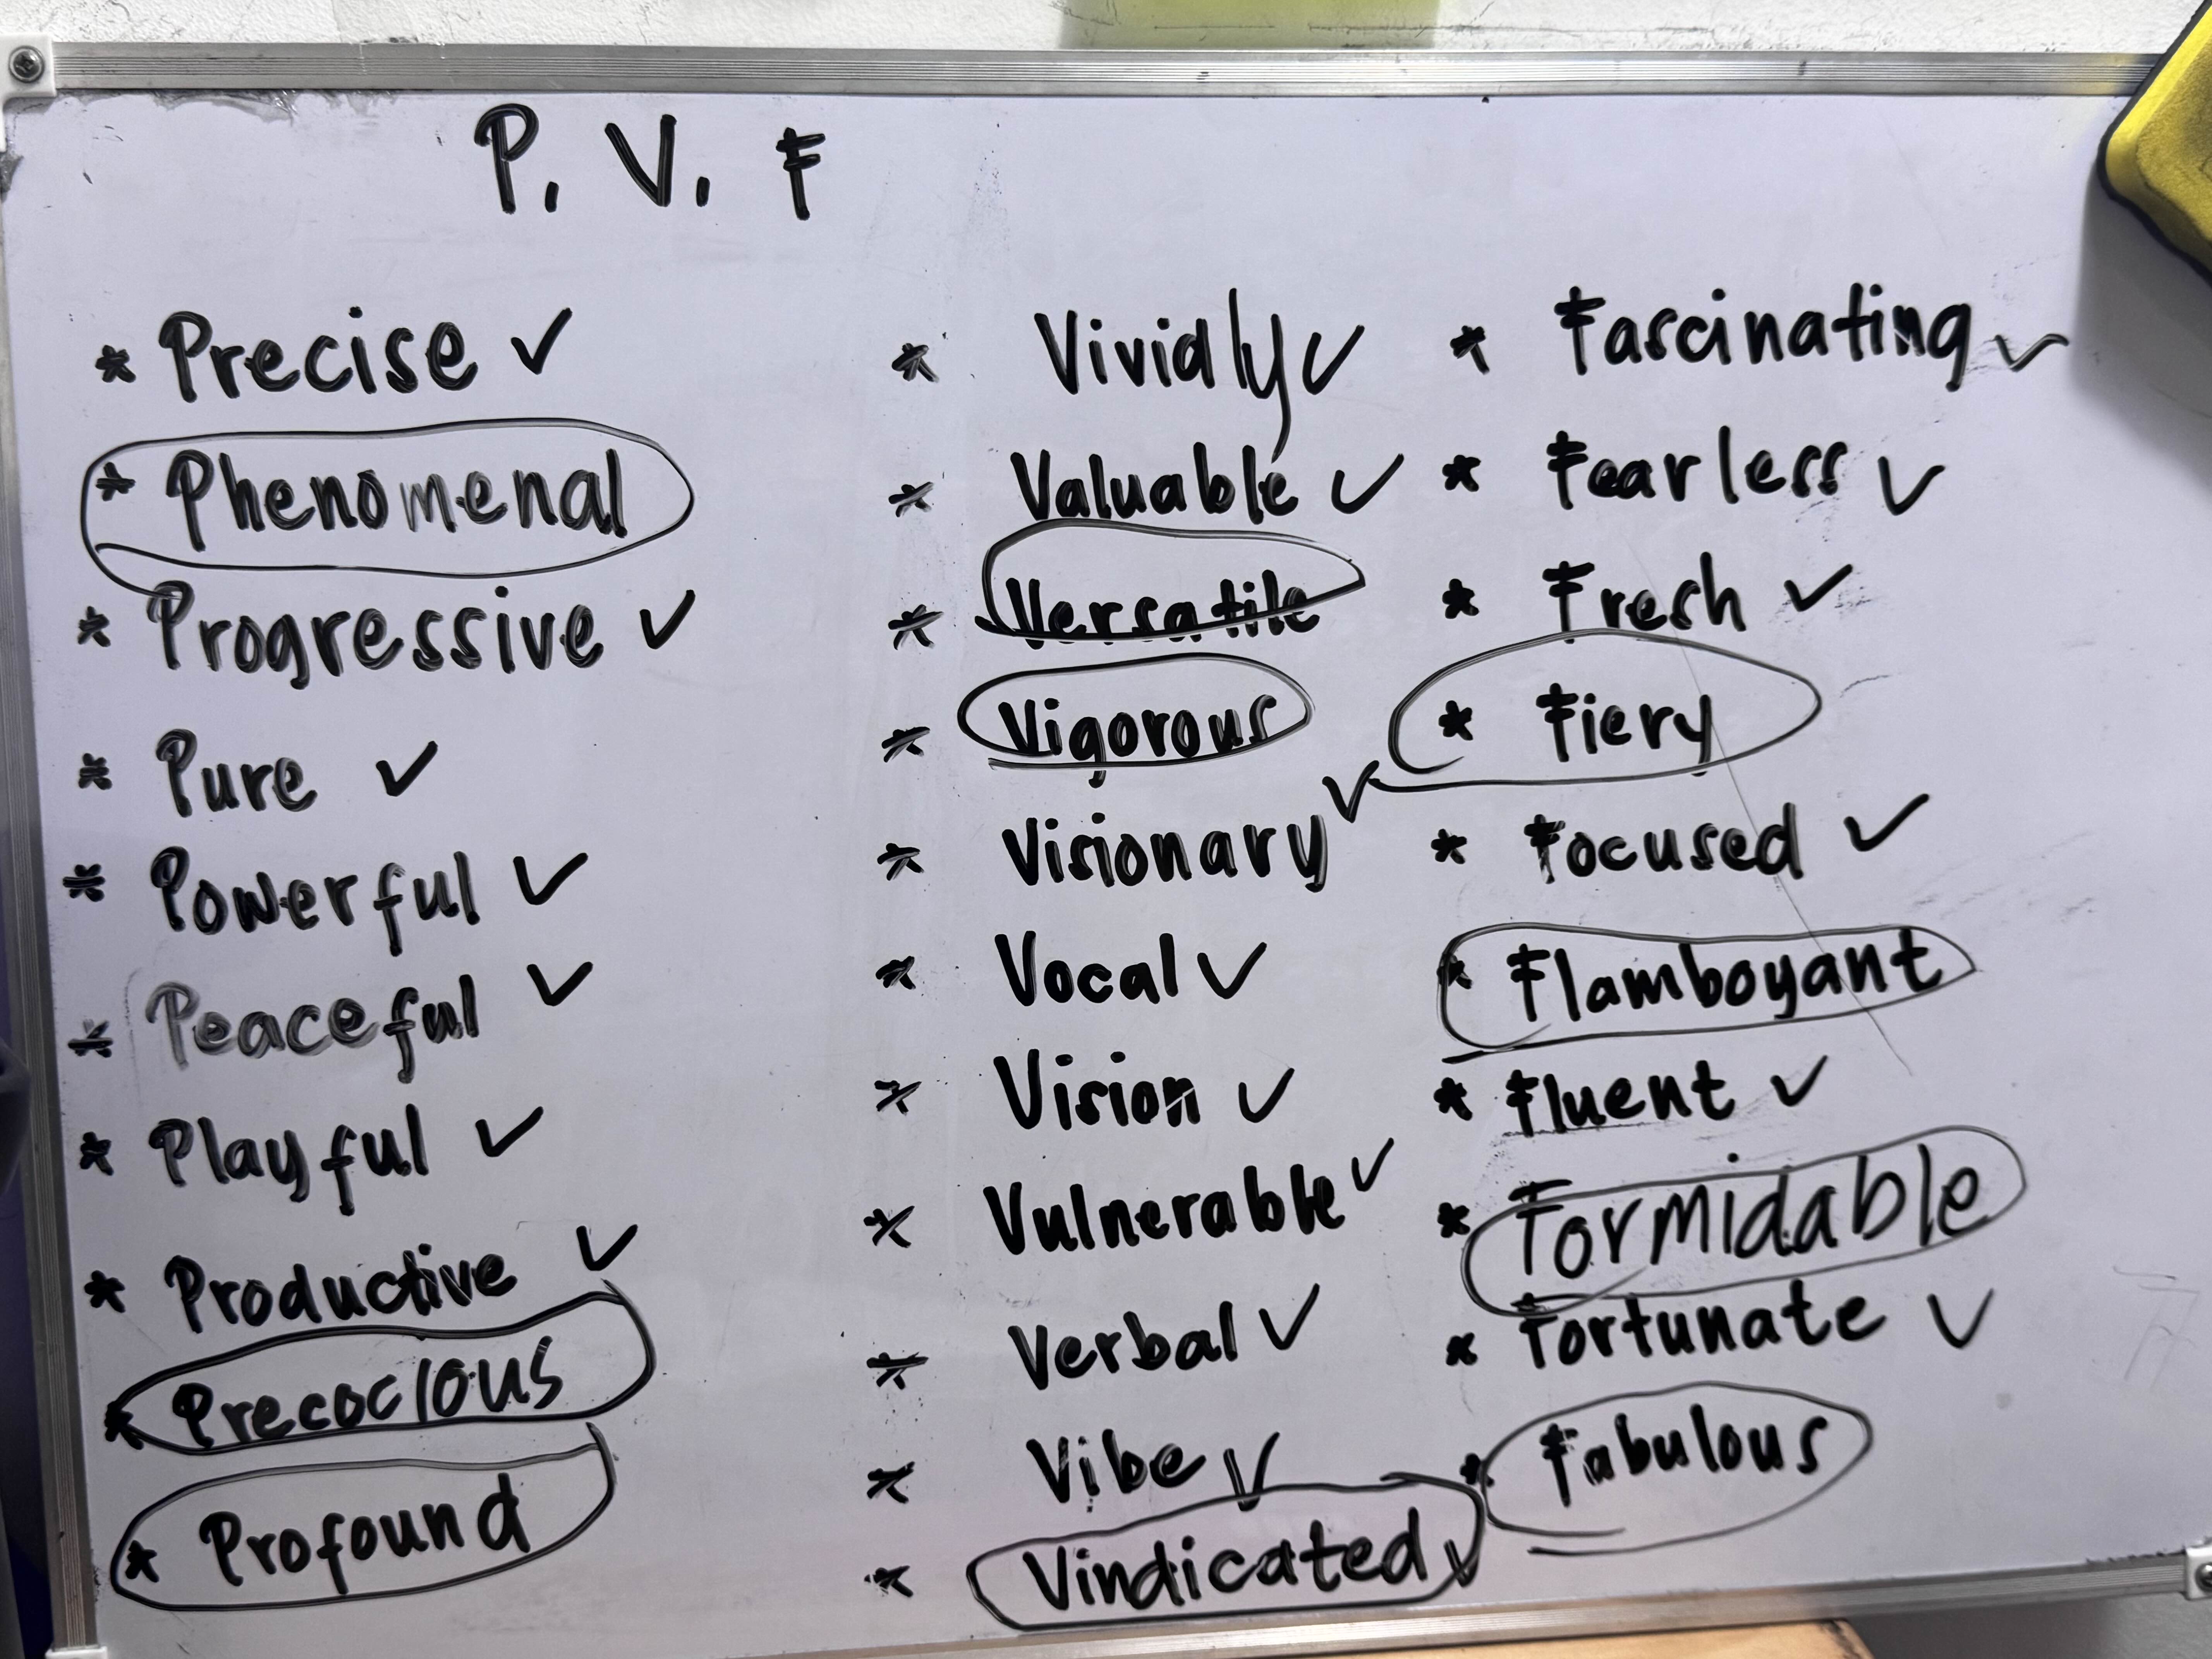 P. V. F
* Precise ✓
* Phenomenal
* Progressive ✓
* Pure ✓
* Powerful ✓
* Peaceful ✓
* Playful ✓
* Productive ✓
* Precocious
* Profound
* Vividly ✓
* Valuable ✓
* Versatile
* Vigorous
* Visionary ✓
* Vocal ✓
* Vision ✓
* Vulnerable ✓
* Verbal ✓
* Vibe ✓
* Vindicated ✓
* Fascinating ✓
* Fearless ✓
* Fresh ✓
* Fiery
* Focused ✓
* Flamboyant
* Fluent ✓
* Formidable
* Fortunate ✓
* Fabulous